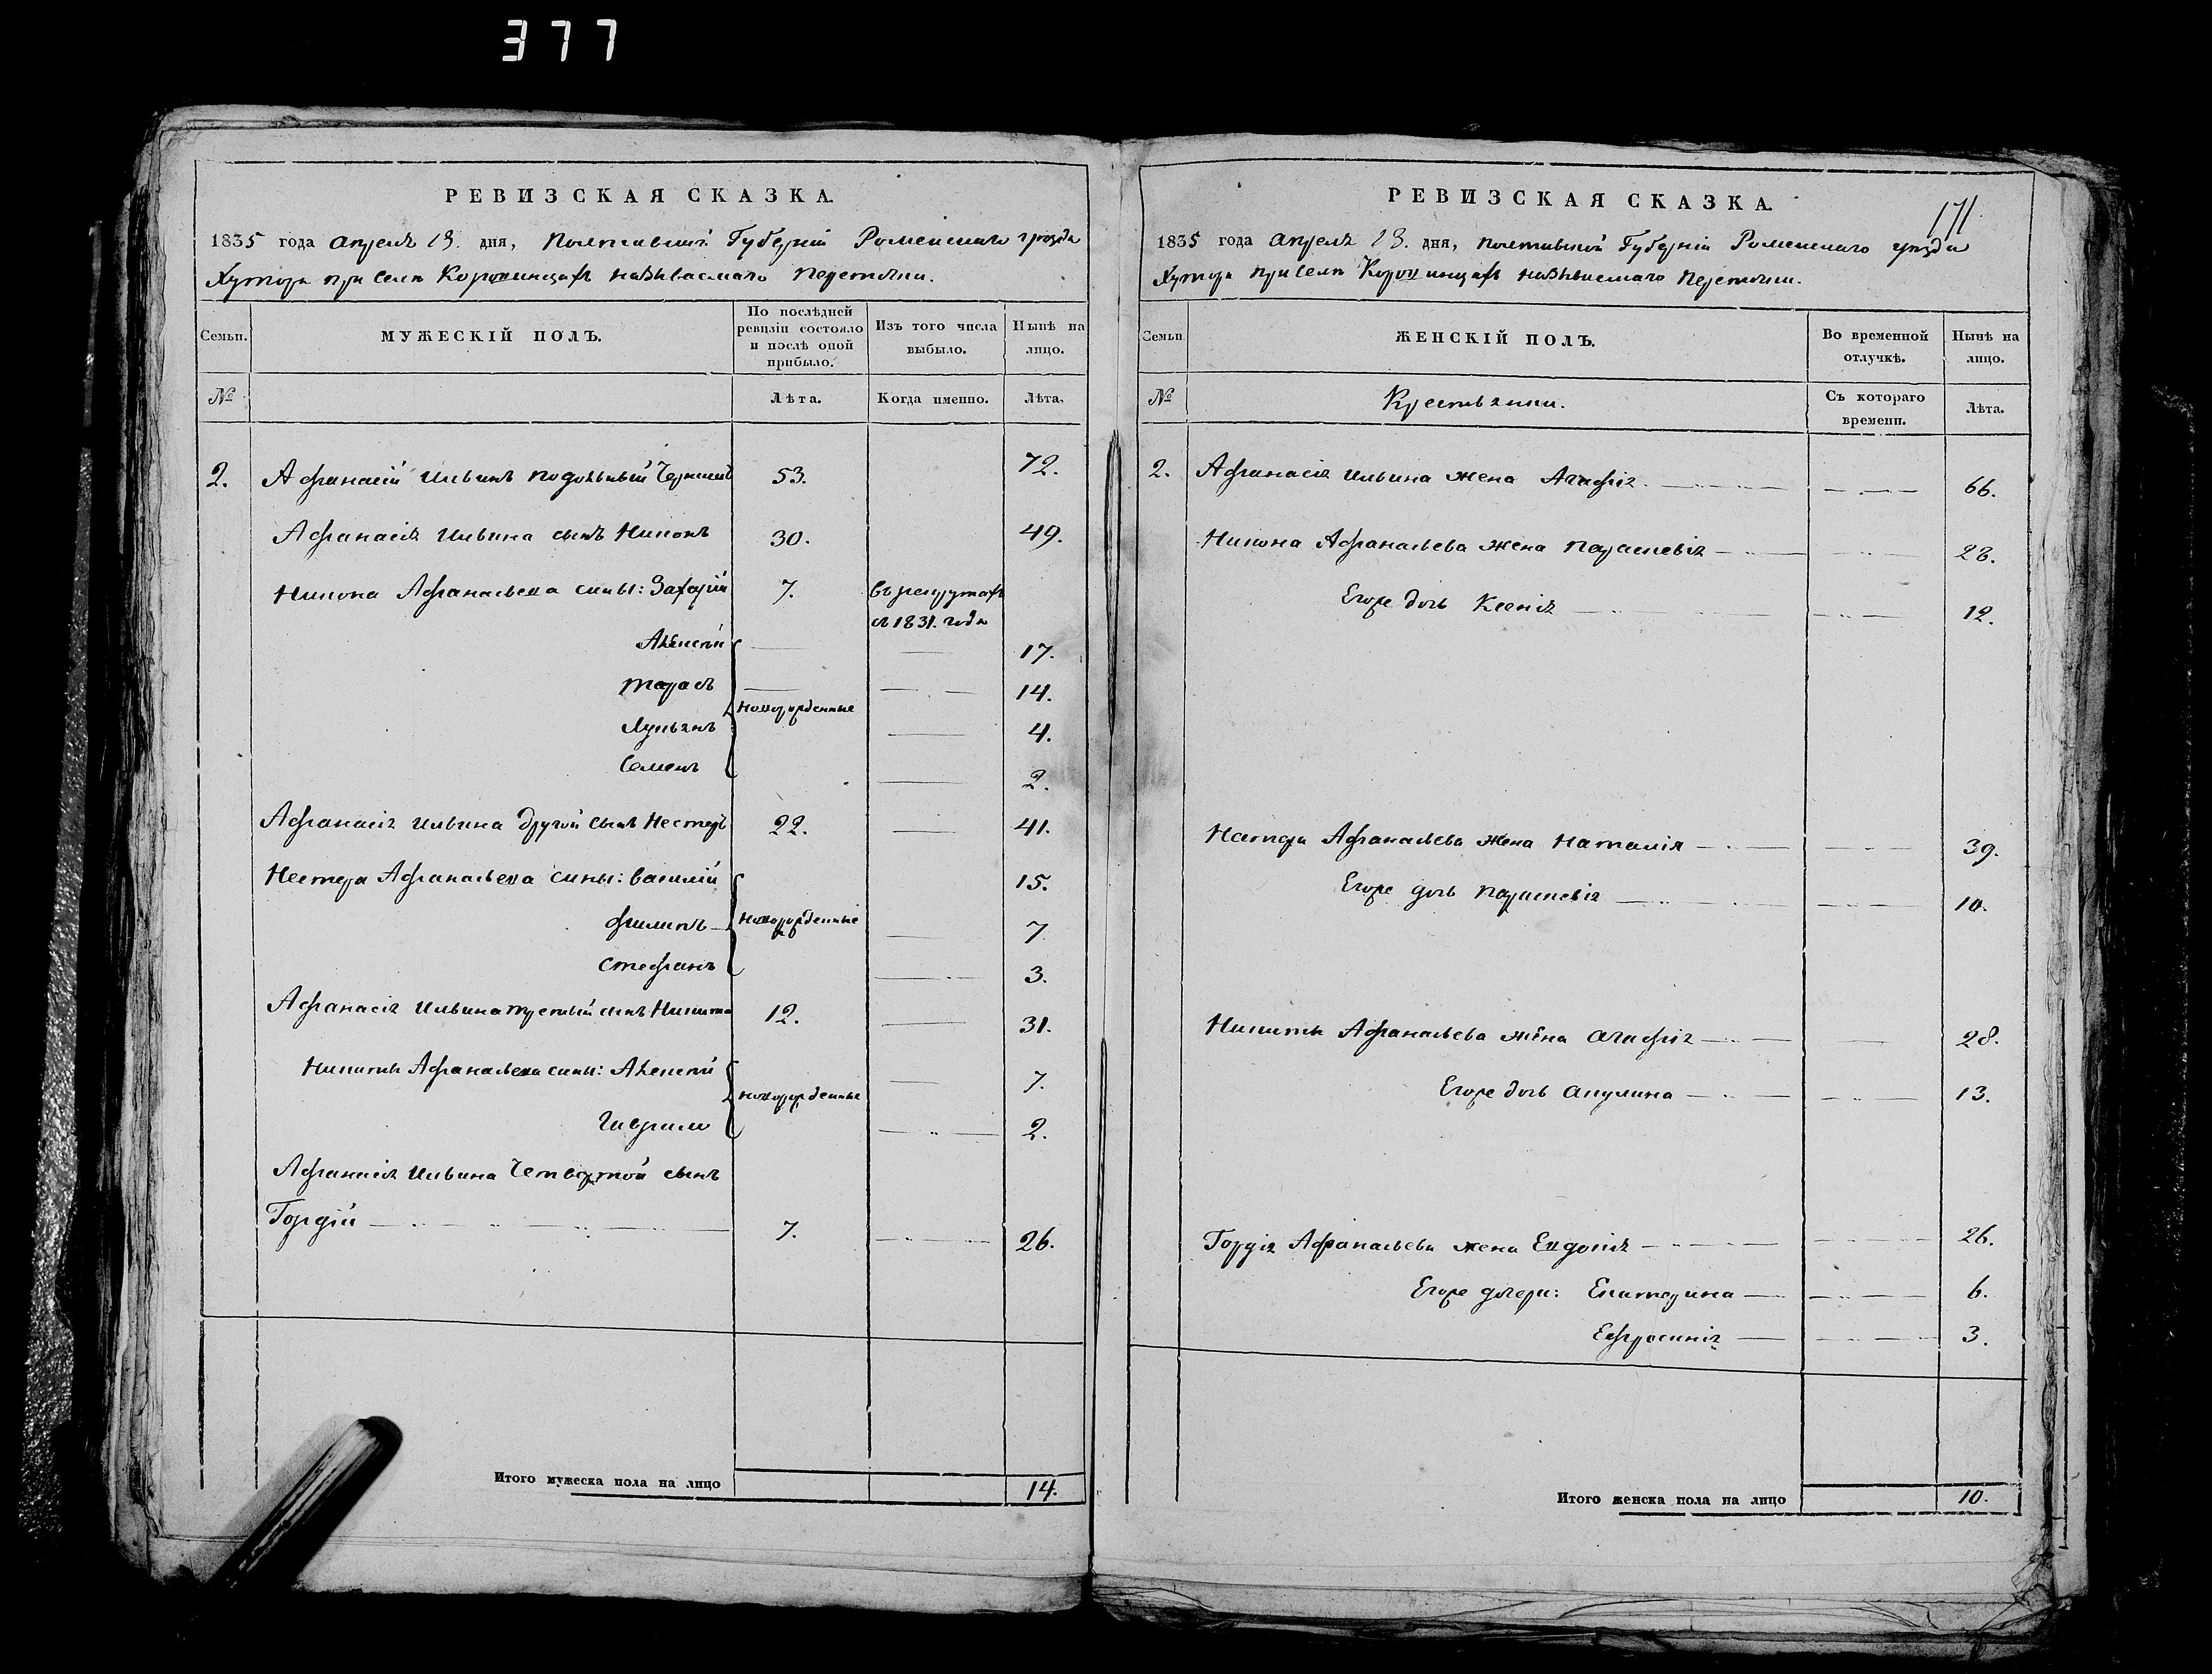 377
РЕВИЗСКАЯ СКАЗКА.
1835 года Апреля 13. дня, Полтавской Губерніи Роменскаго уезда
Хутора при селе Коровинцахъ называемаго Переточки.
Семьи.
МУЖЕСКІЙ ПОЛЪ.
По послѣдней ревизіи состояло и послѣ оной прибыло.
Изъ того числа выбыло.
Нынѣ на лицо.
№
Лѣта.
Когда именно.
Лѣта.
2. Афанасій Ильинъ Подозьный 53. 72.
Афанасія Ильина сынъ Никонъ 30. 49.
Никона Афанасьева сыны: Захарій 7. въ рекрутахъ
съ 1831. года
Алексѣй 17.
Тарасъ 14.
новорожденные
Лукьянъ 4.
Семенъ 2.
Афанасія Ильина другой сынъ Нестеръ 22. 41.
Нестера Афанасьева сыны: Василій 15.
Филипъ новорожденные 7.
Стефанъ 3.
Афанасія Ильина третьій сынъ Никита 12. 31.
Никиты Афанасьева сыны: Алексѣй 7.
новорожденные
Гаврило 2.
Афанасія Ильина четвертой сынъ
Гордѣй 7. 26.
Итого мужеска пола на лицо 14.
171
РЕВИЗСКАЯ СКАЗКА.
1835 года Апреля 13. дня, Полтавской Губерніи Роменскаго уезда
Хутора при селе Коровинцахъ называемаго Переточки.
Семьи
ЖЕНСКІЙ ПОЛЪ.
Во временной отлучкѣ.
Нынѣ на лицо.
№
Крестьянки.
Съ котораго времени.
Лѣта.
2. Афанасія Ильина жена Агафія 66.
Никона Афанасьева жена Параскевія 28.
Егоже дочь Ксенія 12.
Нестера Афанасьева жена Наталія 39.
Егоже дочь Параскевія 10.
Никиты Афанасьева жена Агафія 28.
Егоже дочь Акулина 13.
Гордія Афанасьева жена Евдокія 26.
Егоже дочери: Екатерина 6.
Ефросинія 3.
Итого женска пола на лицо 10.